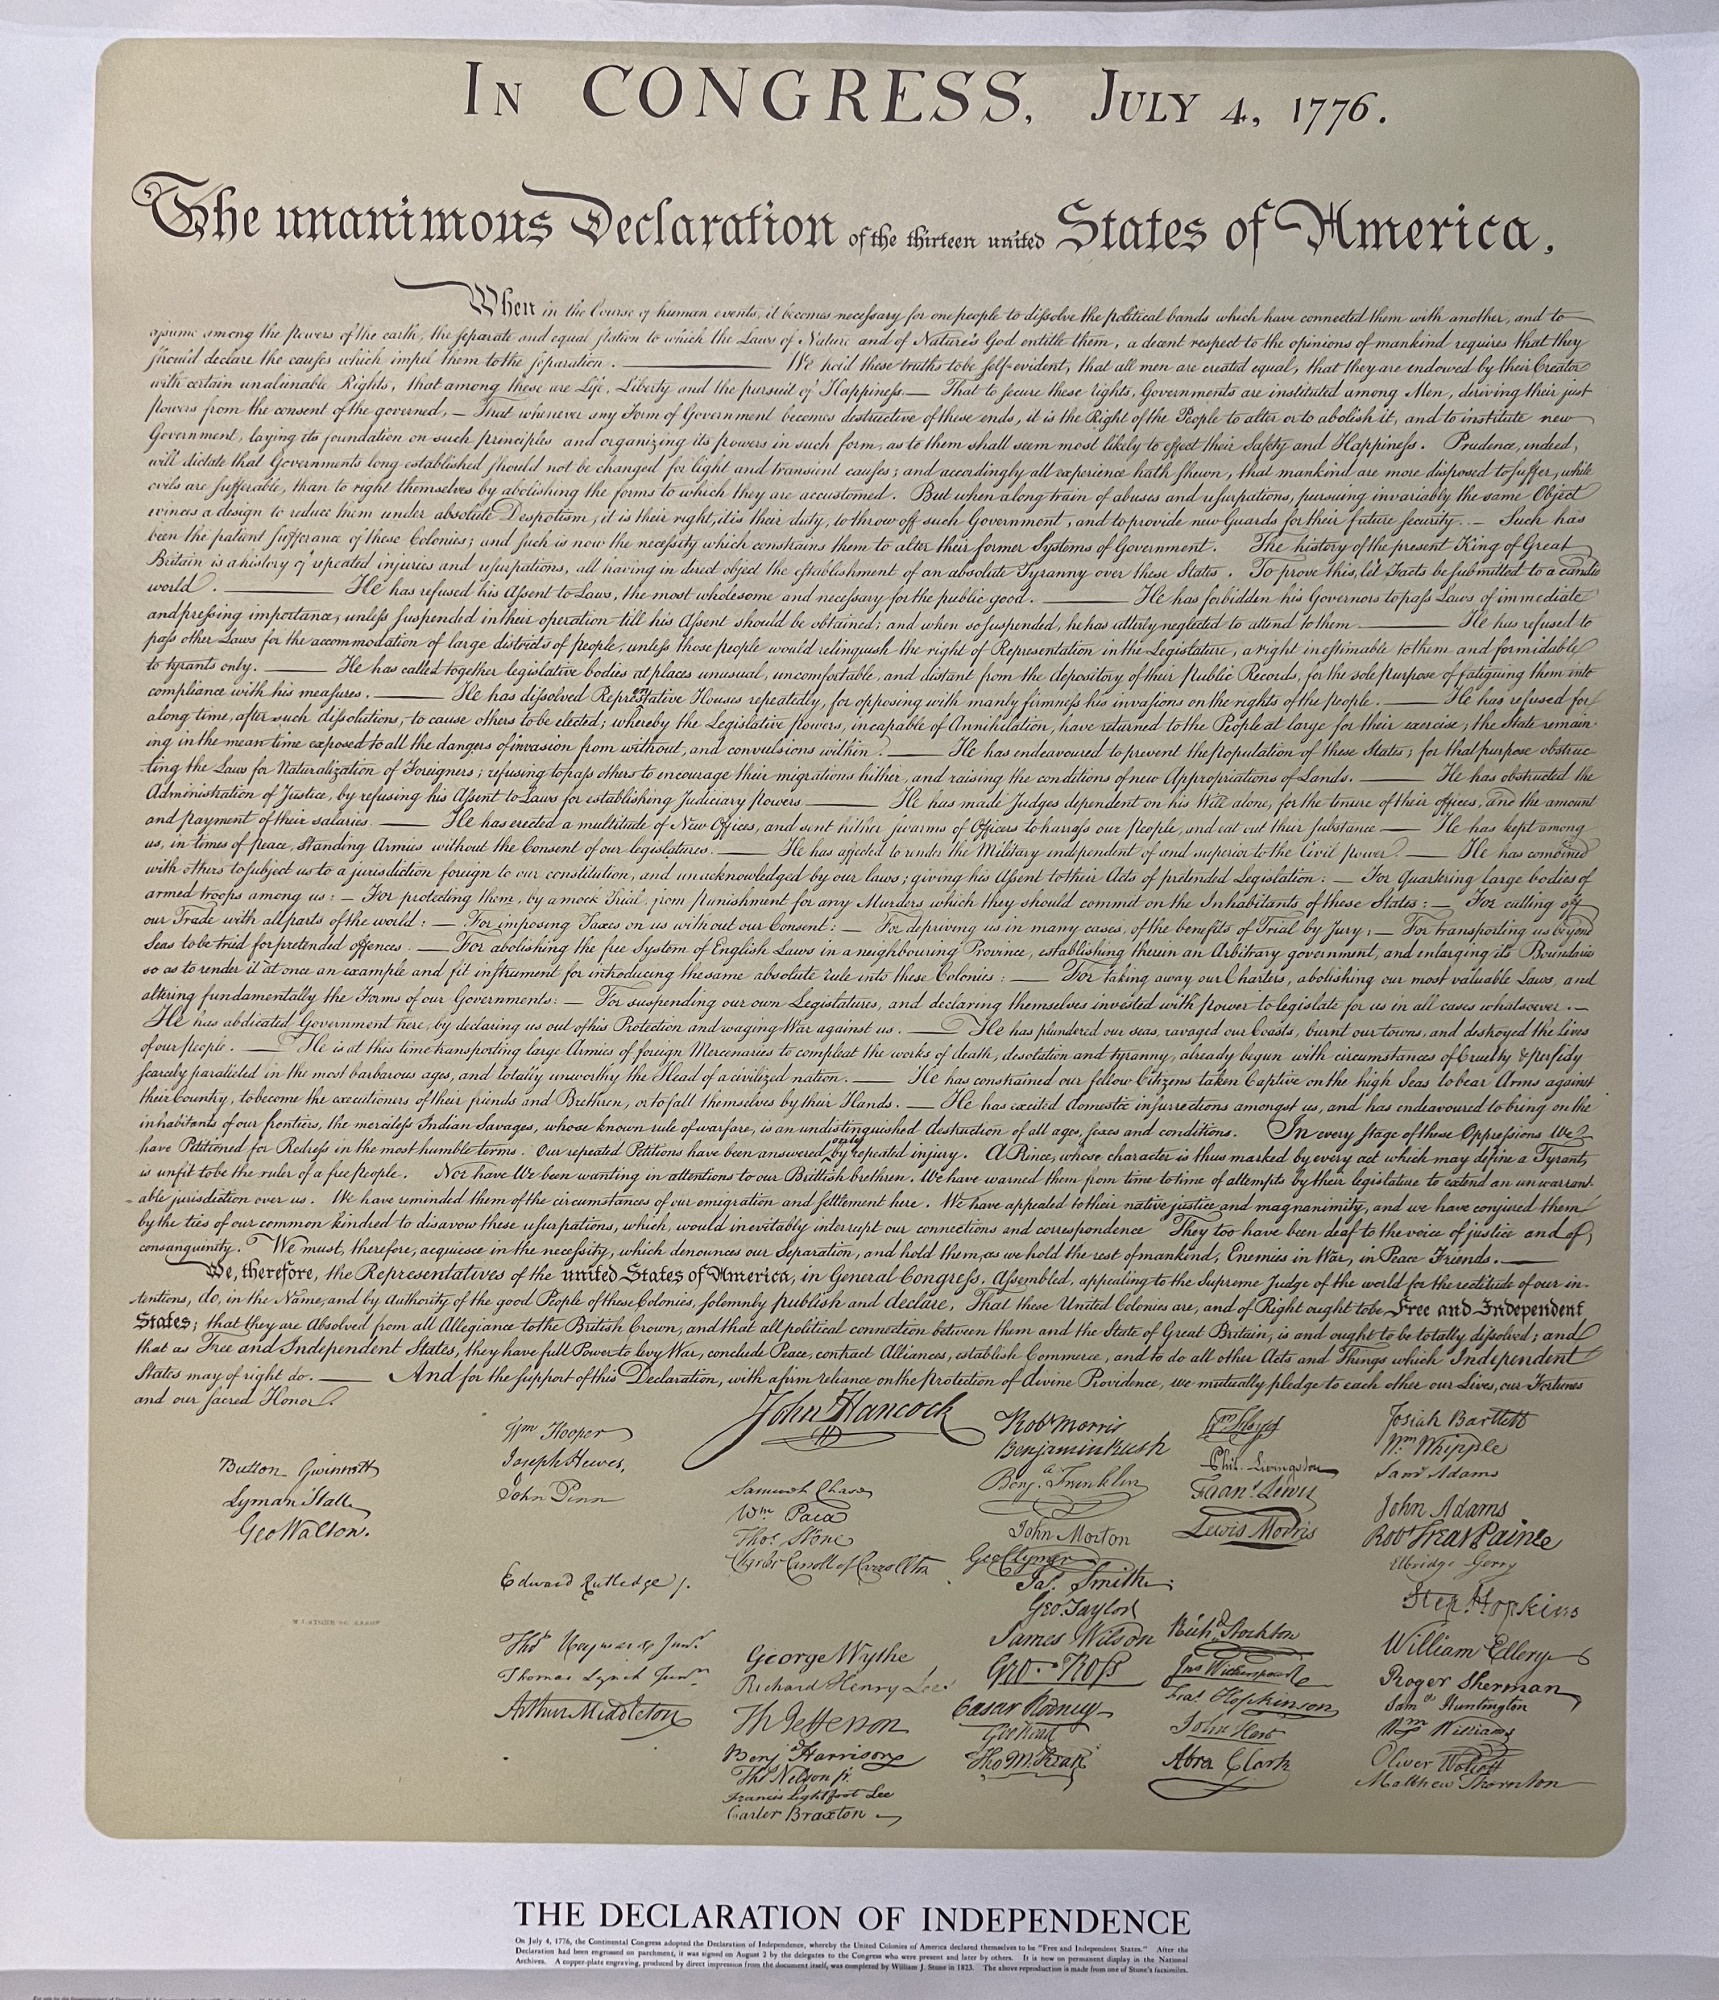 IN CONGRESS, JULY 4, 1776.
The unanimous Declaration of the thirteen united States of America,
When in the Course of human events, it becomes necessary for one people to dissolve the political bands which have connected them with another, and to
assume among the powers of the earth, the separate and equal station to which the Laws of Nature and of Nature's God entitle them, a decent respect to the opinions of mankind requires that they
should declare the causes which impel them to the separation. ——— We hold these truths to be self-evident, that all men are created equal, that they are endowed by their Creator
with certain unalienable Rights, that among these are Life, Liberty and the pursuit of Happiness.— That to secure these rights, Governments are instituted among Men, deriving their just
powers from the consent of the governed, — That whenever any Form of Government becomes destructive of these ends, it is the Right of the People to alter or to abolish it, and to institute new
Government, laying its foundation on such principles and organizing its powers in such form, as to them shall seem most likely to effect their Safety and Happiness. Prudence, indeed,
will dictate that Governments long established should not be changed for light and transient causes; and accordingly all experience hath shewn, that mankind are more disposed to suffer, while
evils are sufferable, than to right themselves by abolishing the forms to which they are accustomed. But when a long train of abuses and usurpations, pursuing invariably the same Object
evinces a design to reduce them under absolute Despotism, it is their right, it is their duty, to throw off such Government, and to provide new Guards for their future security. — Such has
been the patient sufferance of these Colonies; and such is now the necessity which constrains them to alter their former Systems of Government. The history of the present King of Great
Britain is a history of repeated injuries and usurpations, all having in direct object the establishment of an absolute Tyranny over these States. To prove this, let Facts be submitted to a candid
world. ——— He has refused his Assent to Laws, the most wholesome and necessary for the public good. ——— He has forbidden his Governors to pass Laws of immediate
and pressing importance, unless suspended in their operation till his Assent should be obtained; and when so suspended, he has utterly neglected to attend to them ——— He has refused to
pass other Laws for the accommodation of large districts of people, unless those people would relinquish the right of Representation in the Legislature, a right inestimable to them and formidable
to tyrants only. ——— He has called together legislative bodies at places unusual, uncomfortable, and distant from the depository of their Public Records, for the sole purpose of fatiguing them into
compliance with his measures. ——— He has dissolved Representative Houses repeatedly, for opposing with manly firmness his invasions on the rights of the people. ——— He has refused for
a long time, after such dissolutions, to cause others to be elected; whereby the Legislative powers, incapable of Annihilation, have returned to the People at large for their exercise; the State remain-
ing in the mean time exposed to all the dangers of invasion from without, and convulsions within. ——— He has endeavoured to prevent the population of these States; for that purpose obstruc-
ting the Laws for Naturalization of Foreigners; refusing to pass others to encourage their migrations hither, and raising the conditions of new Appropriations of Lands. ——— He has obstructed the
Administration of Justice, by refusing his Assent to Laws for establishing Judiciary powers. ——— He has made Judges dependent on his Will alone, for the tenure of their offices, and the amount
and payment of their salaries. ——— He has erected a multitude of New Offices, and sent hither swarms of Officers to harrass our people, and eat out their substance ——— He has kept among
us, in times of peace, Standing Armies without the Consent of our legislatures. ——— He has affected to render the Military independent of and superior to the Civil power. ——— He has combined
with others to subject us to a jurisdiction foreign to our constitution, and unacknowledged by our laws; giving his Assent to their Acts of pretended Legislation: — For Quartering large bodies of
armed troops among us: — For protecting them, by a mock Trial, from punishment for any Murders which they should commit on the Inhabitants of these States: — For cutting off
our Trade with all parts of the world: — For imposing Taxes on us without our Consent: — For depriving us in many cases, of the benefits of Trial by Jury; — For transporting us beyond
Seas to be tried for pretended offences — For abolishing the free System of English Laws in a neighbouring Province, establishing therein an Arbitrary government, and enlarging its Boundaries
so as to render it at once an example and fit instrument for introducing the same absolute rule into these Colonies: — For taking away our Charters, abolishing our most valuable Laws, and
altering fundamentally the Forms of our Governments: — For suspending our own Legislatures, and declaring themselves invested with power to legislate for us in all cases whatsoever. —
He has abdicated Government here, by declaring us out of his Protection and waging War against us. — He has plundered our seas, ravaged our Coasts, burnt our towns, and destroyed the lives
of our people. — He is at this time transporting large Armies of foreign Mercenaries to compleat the works of death, desolation and tyranny, already begun with circumstances of Cruelty & perfidy
scarcely paralleled in the most barbarous ages, and totally unworthy the Head of a civilized nation. — He has constrained our fellow Citizens taken Captive on the high Seas to bear Arms against
their Country, to become the executioners of their friends and Brethren, or to fall themselves by their Hands. — He has excited domestic insurrections amongst us, and has endeavoured to bring on the
inhabitants of our frontiers, the merciless Indian Savages, whose known rule of warfare, is an undistinguished destruction of all ages, sexes and conditions. In every stage of these Oppressions We
have Petitioned for Redress in the most humble terms: Our repeated Petitions have been answered only by repeated injury. A Prince, whose character is thus marked by every act which may define a Tyrant,
is unfit to be the ruler of a free people. Nor have We been wanting in attentions to our Brittish brethren. We have warned them from time to time of attempts by their legislature to extend an unwarrant-
able jurisdiction over us. We have reminded them of the circumstances of our emigration and settlement here. We have appealed to their native justice and magnanimity, and we have conjured them
by the ties of our common kindred to disavow these usurpations, which, would inevitably interrupt our connections and correspondence They too have been deaf to the voice of justice and of
consanguinity. We must, therefore, acquiesce in the necessity, which denounces our Separation, and hold them, as we hold the rest of mankind, Enemies in War, in Peace Friends. —
We, therefore, the Representatives of the united States of America, in General Congress, Assembled, appealing to the Supreme Judge of the world for the rectitude of our in-
tentions, do, in the Name, and by Authority of the good People of these Colonies, solemnly publish and declare, That these United Colonies are, and of Right ought to be Free and Independent
States; that they are Absolved from all Allegiance to the British Crown, and that all political connection between them and the State of Great Britain, is and ought to be totally dissolved; and
that as Free and Independent States, they have full Power to levy War, conclude Peace, contract Alliances, establish Commerce, and to do all other Acts and Things which Independent
States may of right do. — And for the support of this Declaration, with a firm reliance on the Protection of divine Providence, we mutually pledge to each other our Lives, our Fortunes
and our sacred Honor.
Button Gwinnett
Lyman Hall
Geo Walton.
Wm Hooper
Joseph Hewes,
John Penn
Edward Rutledge /.
Thos Heyward Junr.
Thomas Lynch Junr.
Arthur Middleton
John Hancock
Samuel Chase
Wm Paca
Thos Stone
Charles Carroll of Carrollton
George Wythe
Richard Henry Lee
Th Jefferson
Benj Harrison
Thos Nelson jr.
Francis Lightfoot Lee
Carter Braxton
Robt Morris
Benjamin Rush
Benja Franklin
John Morton
Geo Clymer
Jas. Smith
Geo. Taylor
James Wilson
Geo. Ross
Caesar Rodney
Geo Read
Tho M:Kean
Wm Floyd
Phil. Livingston
Frans. Lewis
Lewis Morris
Richd. Stockton
Jno Witherspoon
Fras. Hopkinson
John Hart
Abra Clark
Josiah Bartlett
Wm Whipple
Saml Adams
John Adams
Robt Treat Paine
Elbridge Gerry
Step. Hopkins
William Ellery
Roger Sherman
Samel Huntington
Wm Williams
Oliver Wolcott
Matthew Thornton
THE DECLARATION OF INDEPENDENCE
On July 4, 1776, the Continental Congress adopted the Declaration of Independence, whereby the United Colonies of America declared themselves to be "Free and Independent States." After the
Declaration had been engrossed on parchment, it was signed on August 2 by the delegates to the Congress who were present and later by others. It is now on permanent display in the National
Archives. A copper-plate engraving, produced by direct impression from the document itself, was completed by William J. Stone in 1823. The above reproduction is made from one of Stone's facsimiles.